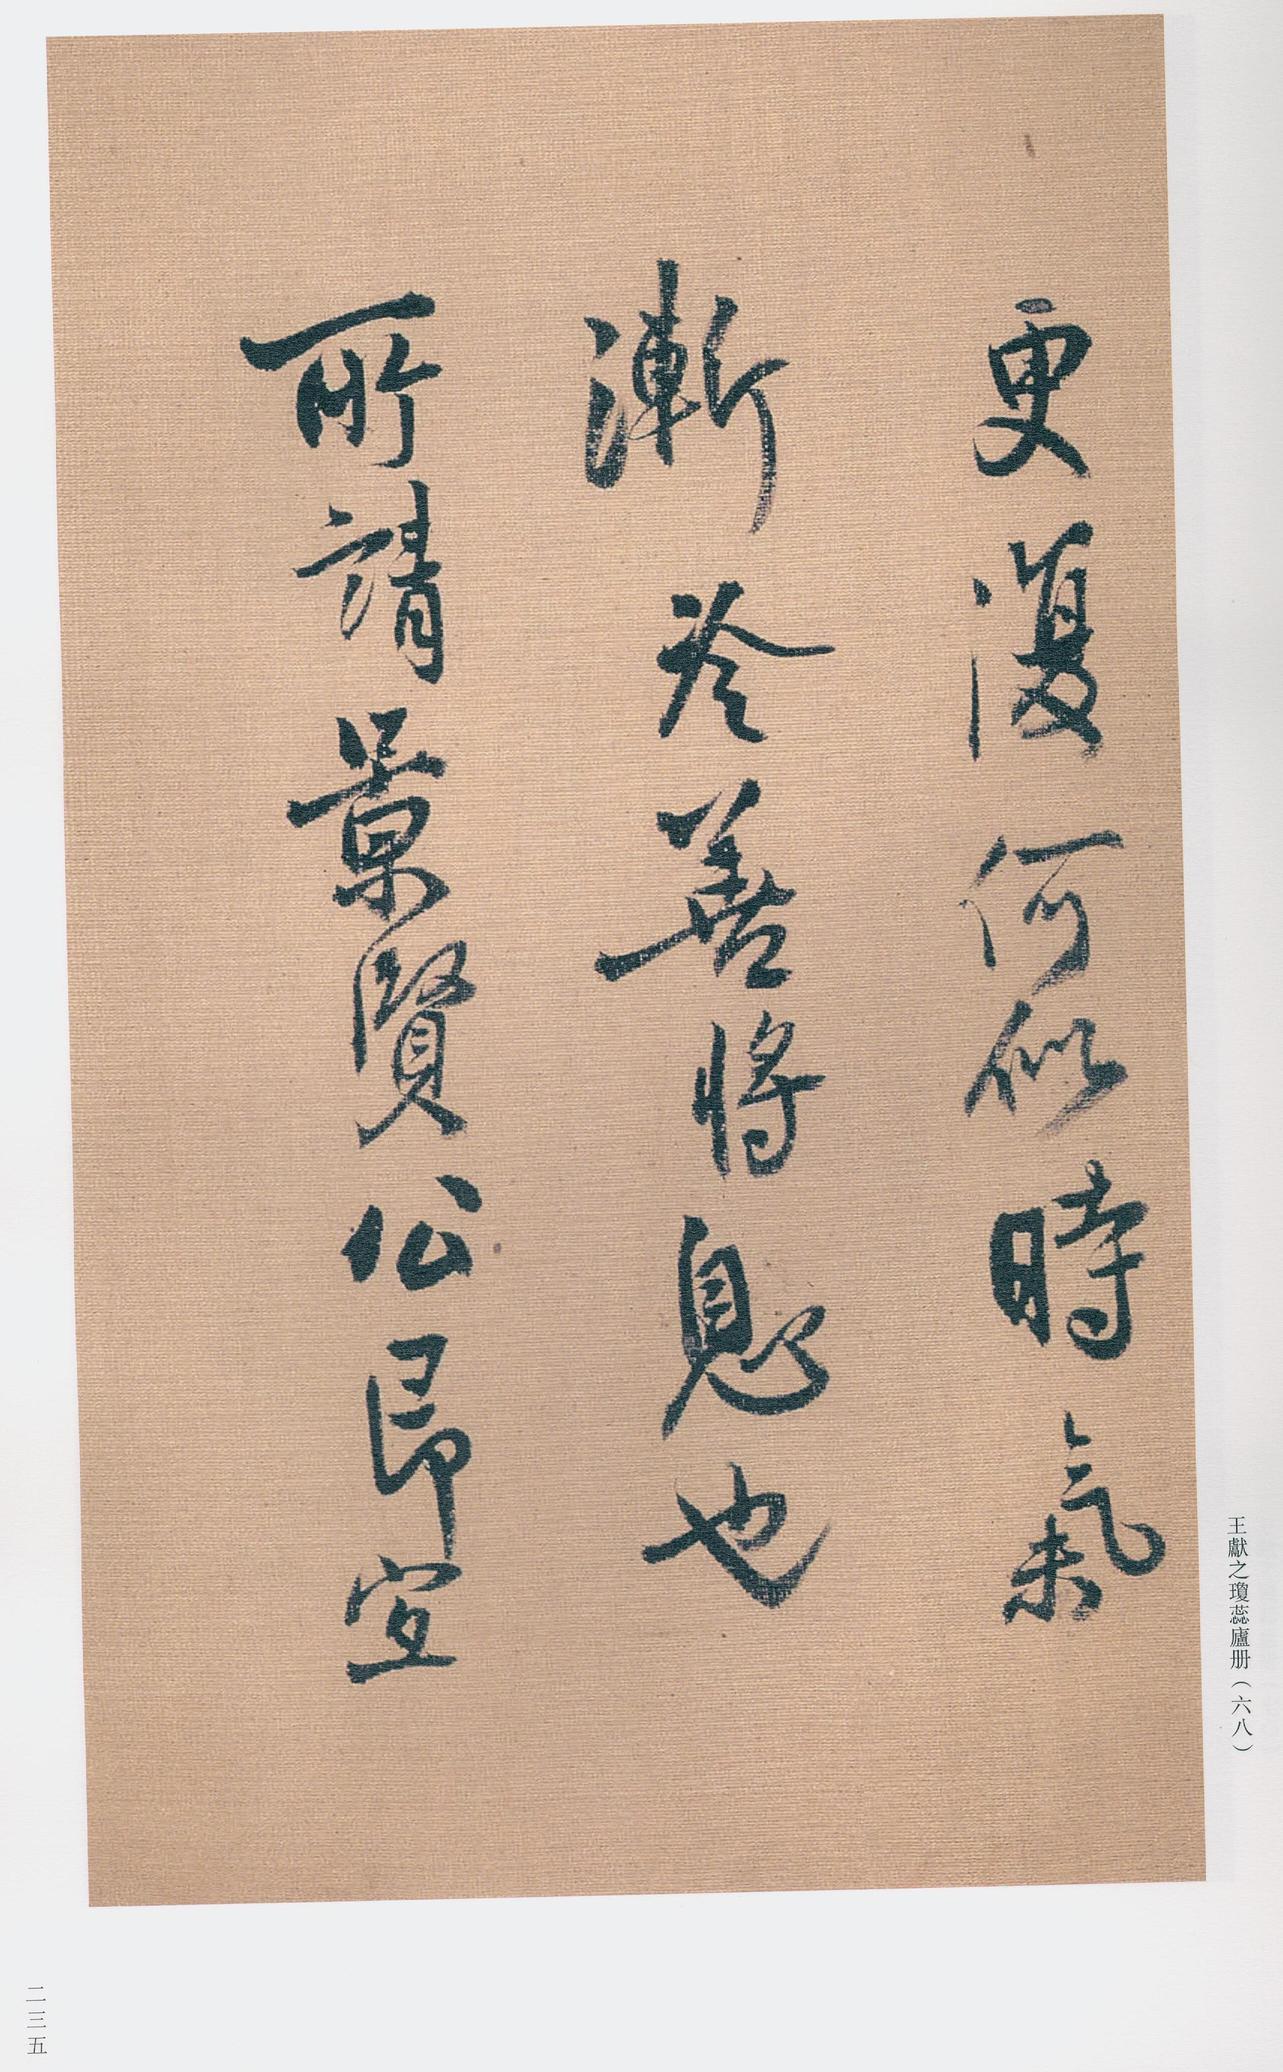 更復何似時氣
漸冷善將息也
所請景賢公昂宜
王獻之瓊蕊廬册（六八）
二三五